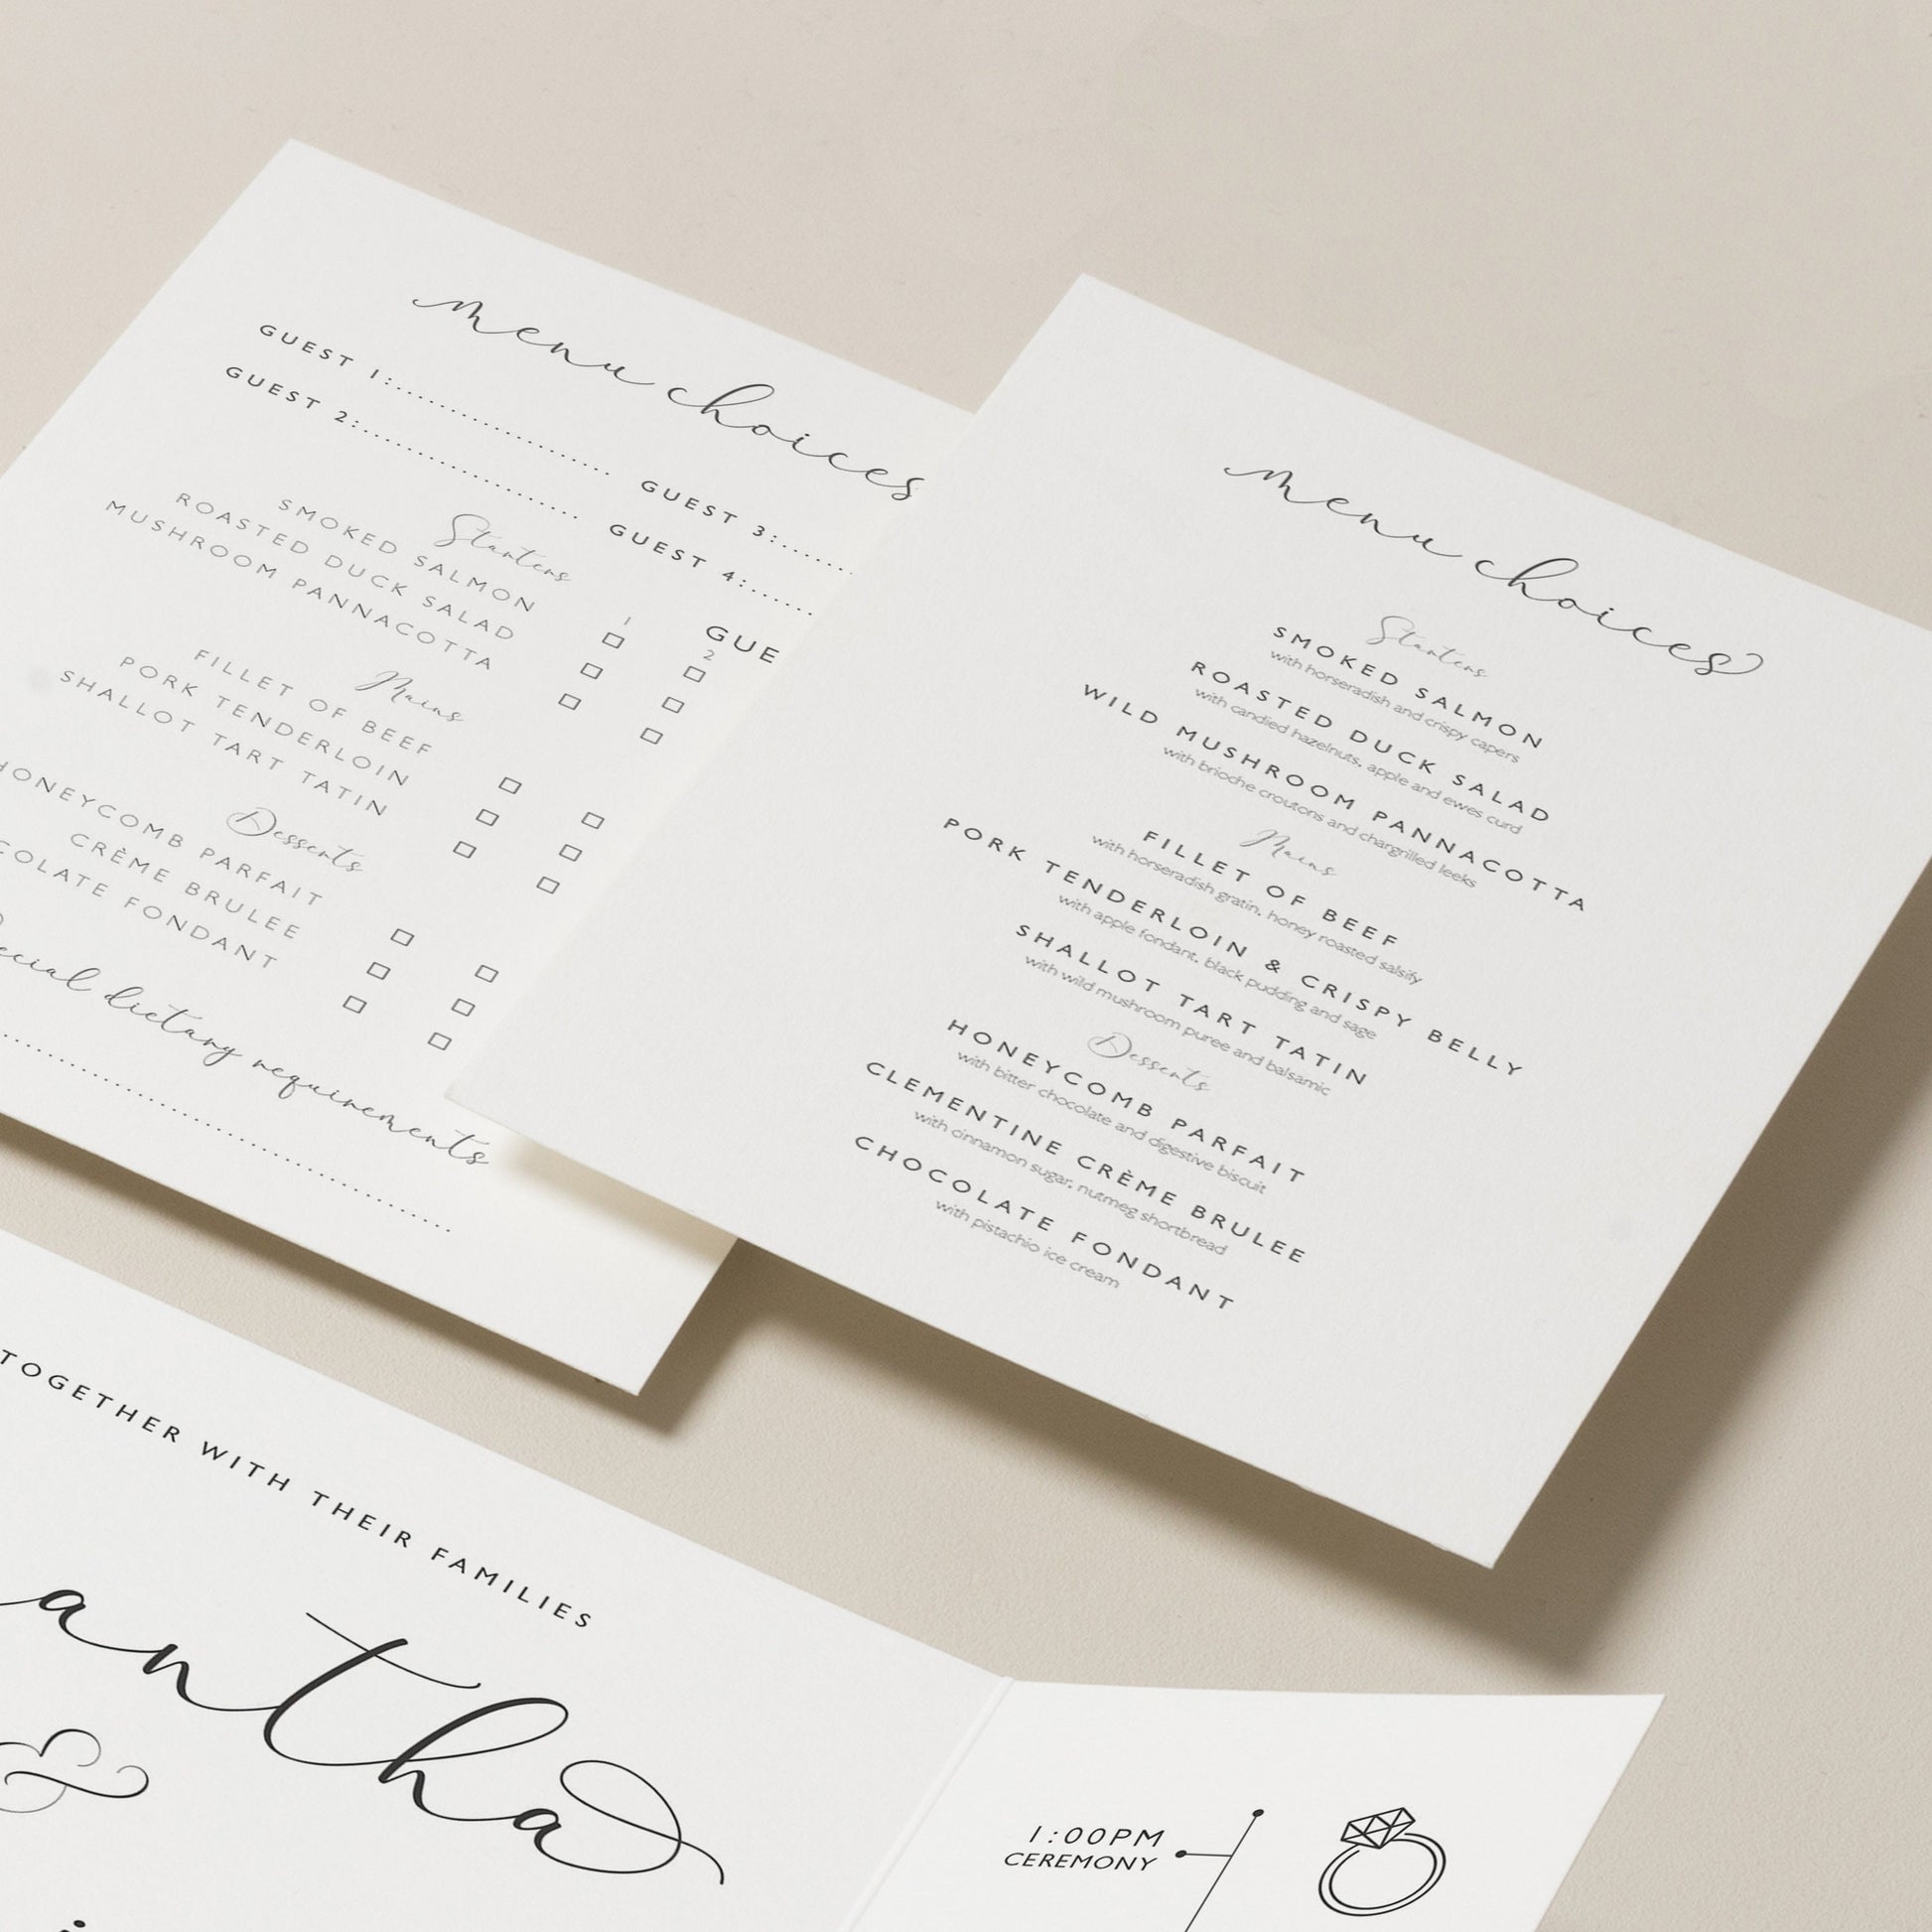 menu choices
GUEST 1:..............................
GUEST 2:..............................
GUEST 3:..........
GUEST 4:..........
GUE
1 2
Starters
SMOKED SALMON
ROASTED DUCK SALAD
MUSHROOM PANNACOTTA
Mains
FILLET OF BEEF
PORK TENDERLOIN
SHALLOT TART TATIN
Desserts
HONEYCOMB PARFAIT
CRÈME BRULEE
COLATE FONDANT
ecial dietary requirements
menu choices
Starters
SMOKED SALMON
with horseradish and crispy capers
ROASTED DUCK SALAD
with candied hazelnuts, apple and ewes curd
WILD MUSHROOM PANNACOTTA
with brioche croutons and chargrilled leeks
Mains
FILLET OF BEEF
with horseradish gratin, honey roasted salsify
PORK TENDERLOIN & CRISPY BELLY
with apple fondant, black pudding and sage
SHALLOT TART TATIN
with wild mushroom puree and balsamic
Desserts
HONEYCOMB PARFAIT
with bitter chocolate and digestive biscuit
CLEMENTINE CRÈME BRULEE
with cinnamon sugar, nutmeg shortbread
CHOCOLATE FONDANT
with pistachio ice cream
TOGETHER WITH THEIR FAMILIES
antha
&
1:00PM
CEREMONY